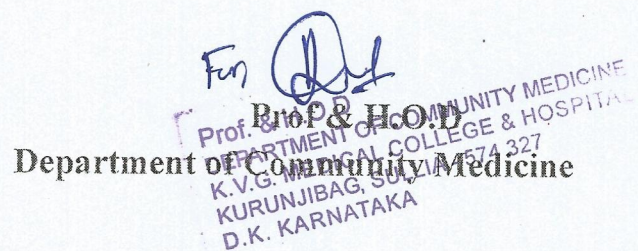 For
Prof & H.O.D
Department of Community Medicine
Prof. & H.O.D
DEPARTMENT OF COMMUNITY MEDICINE
K.V.G. MEDICAL COLLEGE & HOSPITAL
KURUNJIBAG, SULLIA-574 327
D.K. KARNATAKA